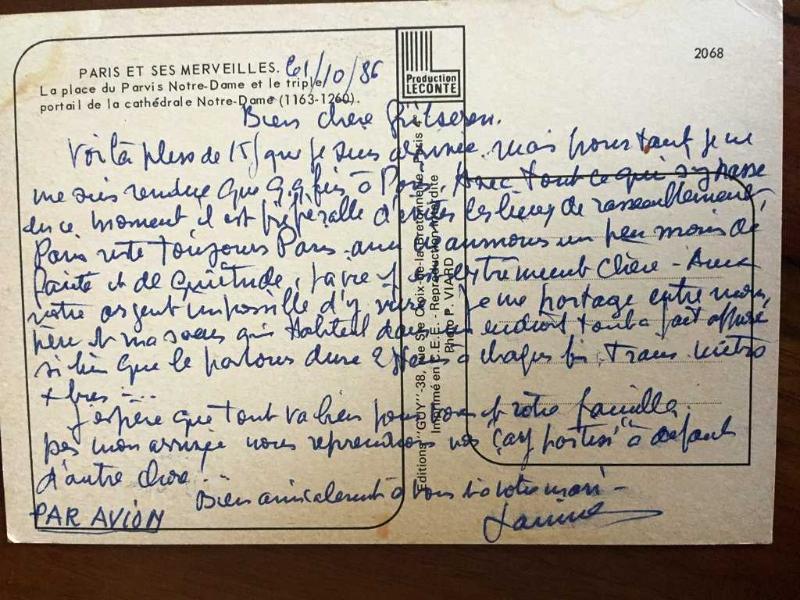 2068
PARIS ET SES MERVEILLES.
La place du Parvis Notre-Dame et le triple
portail de la cathédrale Notre-Dame (1163-1260).
Production
LECONTE
/10/86
Bien chère
Voilà plus de 15j que je suis arrivée mais pourtant je ne
me suis rendue que q.q. fois à Paris. Avec tout ce qui s'y passe
en ce moment il est préférable d'éviter les lieux de rassemblement,
Paris reste toujours Paris un peu moins de
et de quiétude, la vie y est extrêmement chère - Avec
notre argent impossible d'y vivre. Je me partage entre mon
père et ma soeur qui habitent dans un endroit tout à fait opposé
si bien que le parcours dure 2 à chaque fois, Train métro
+ bus
J'espère que tout va bien pour vous et votre famille
mon arrivée nous reprendrons nos "çay partisi" à
d'autre chose...
Bien amicalement à vous et à votre mari -
PAR AVION
Editions "GUY"-38, rue Ste Croix-de-la-Bretonnerie, Paris
Imprimé en C.E.E. - Reproduction interdite
Photo P. VIARD